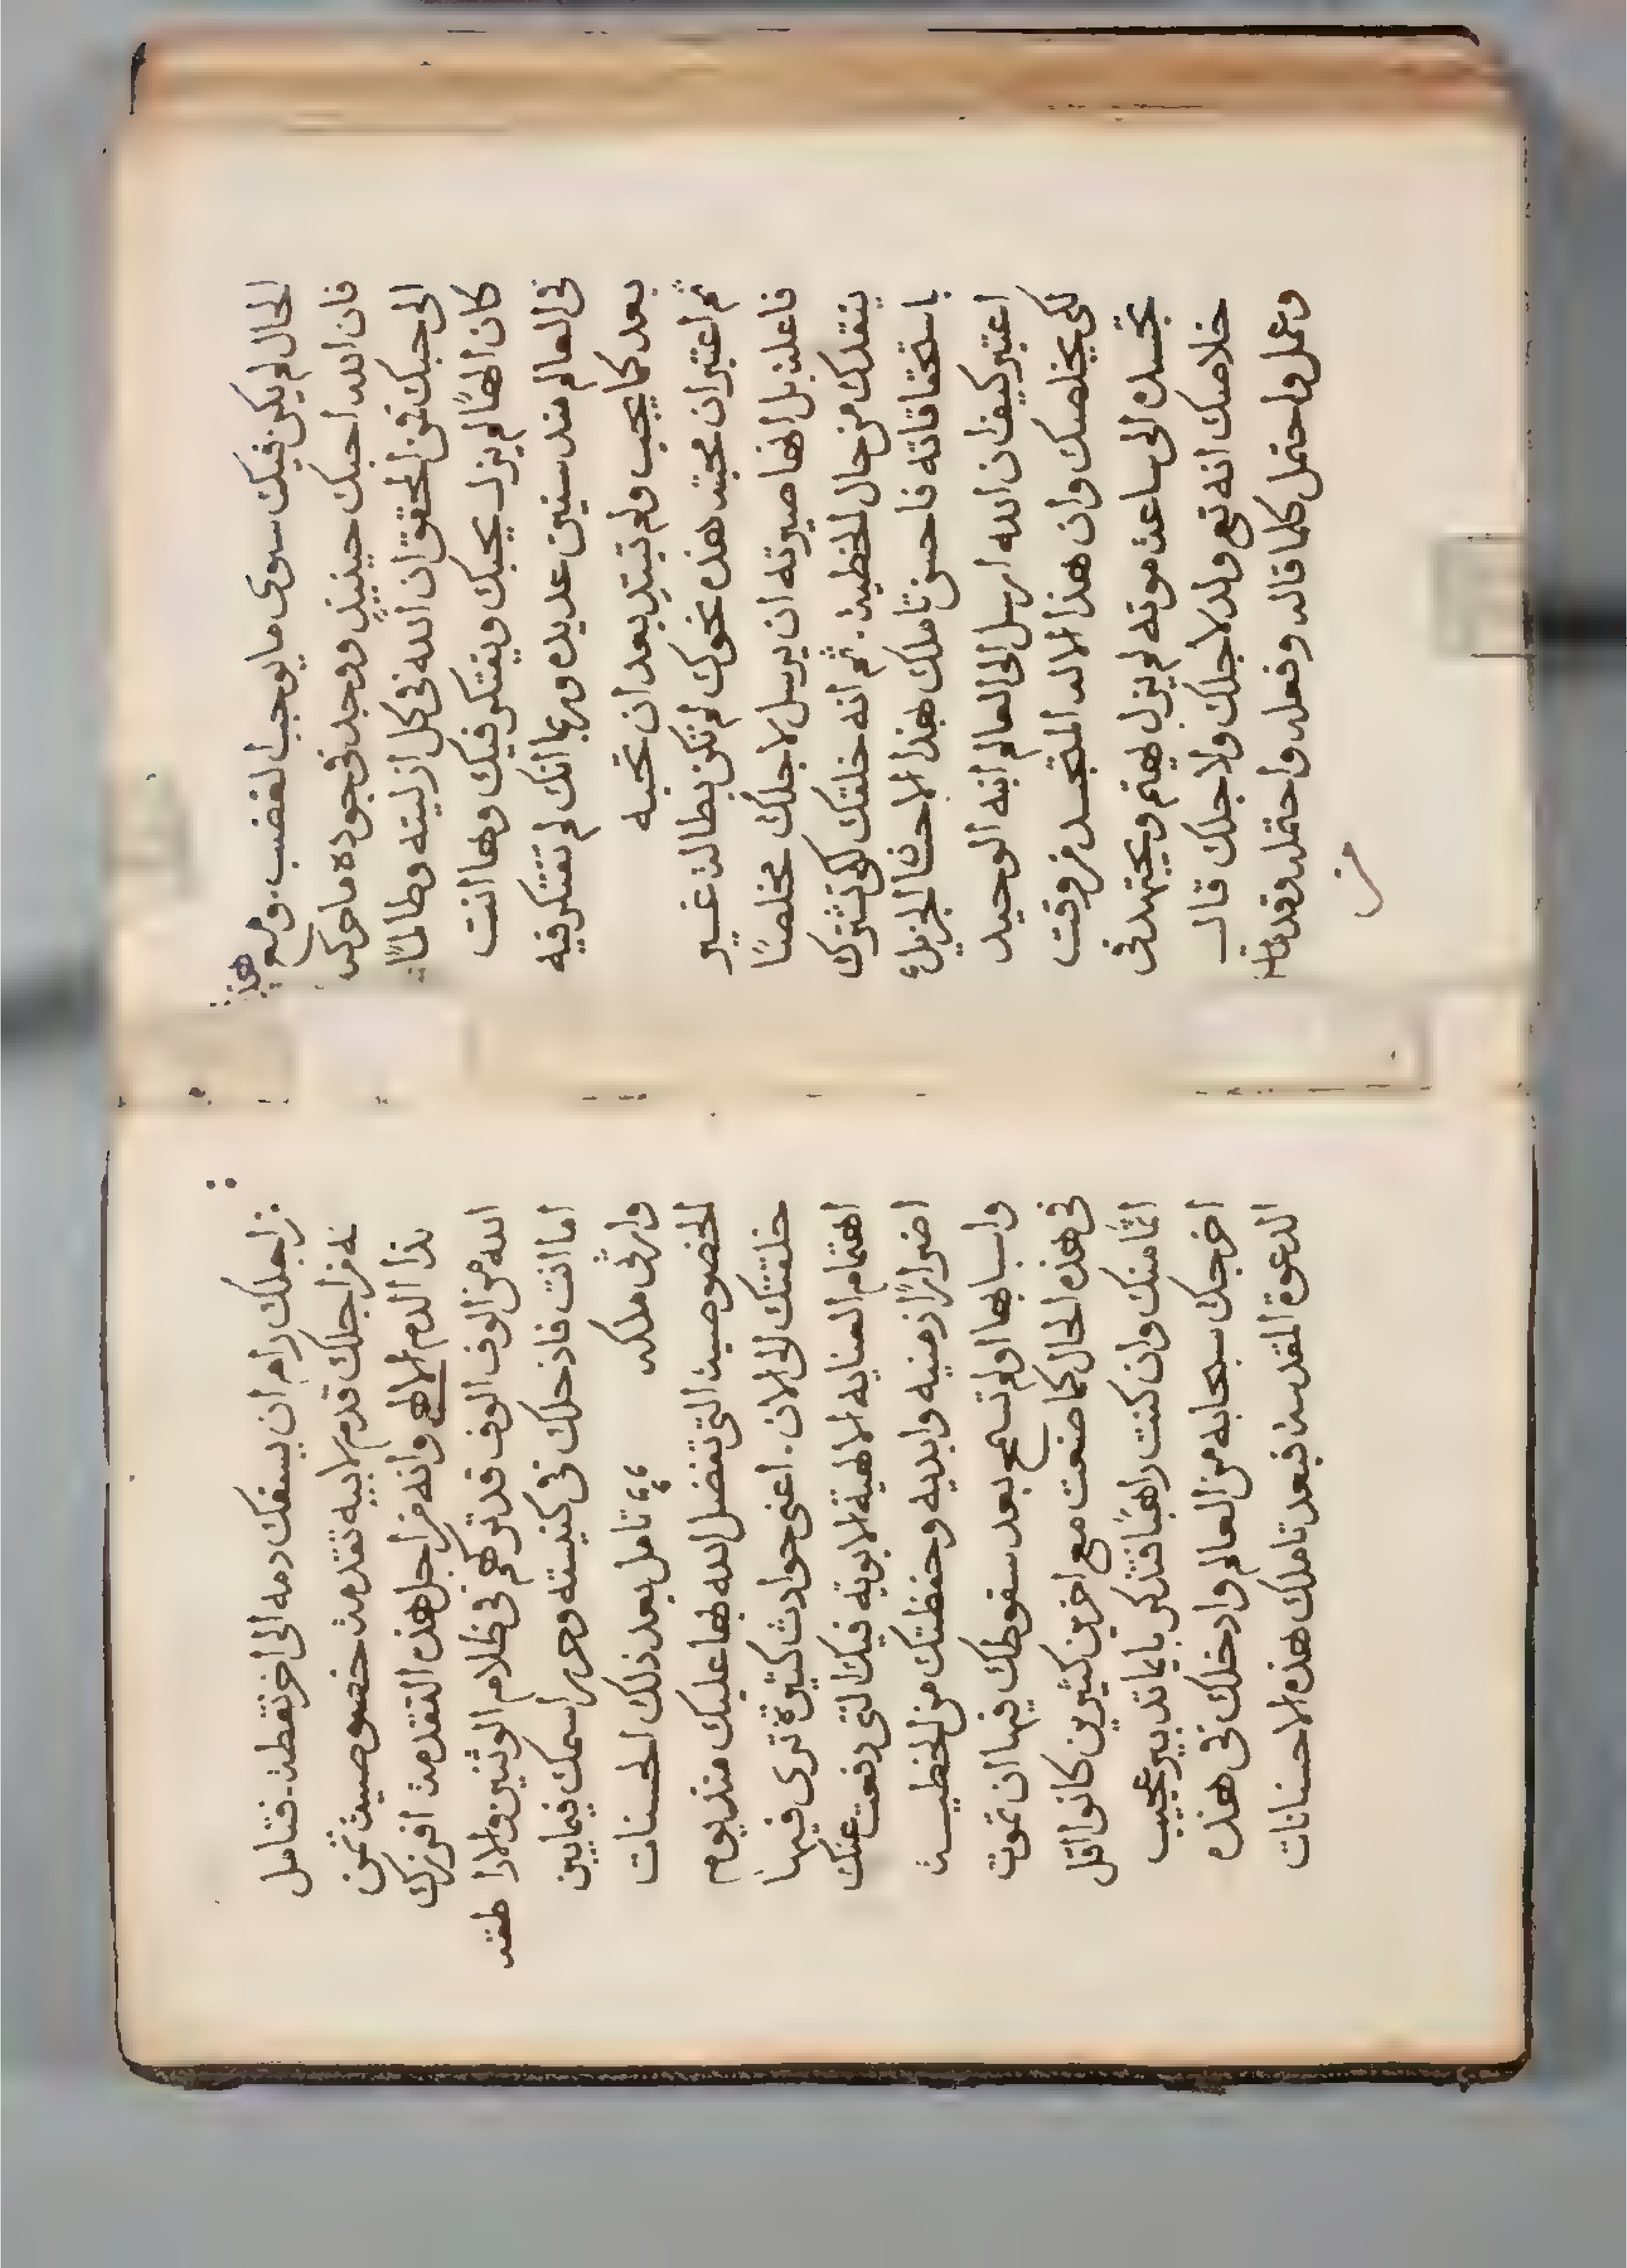 الحال لم يكن فيك سوى ما يوجب الغضب. ومع هذا
فان الله احبك حينيذٍ ووجد في جوده ما حركه
الى حبك فمن المحقق ان الله في كل ازليته وطالما
كان الهًا لم يزل يحبك ويفتكر فيك وها انت
في العالم منذ سنين عديده وربما انك لم تفتكر فيه
بعد كما يجب ولم تبتدِ بعد ان تحبه
ثم اعتبر ان محبته هذه نحوك لم تكن بطالة غير
فاعلة بل انها صيرته ان يرسل لاجلك مخلصًا
ينقذك من حال الخطية. ثم انه خلقك لكي تشترك
باستحقاقاته فاحسن تاملك بهذا الاحسان الجزيل
اعتبر كيف ان الله ارسل الى العالم ابنه الوحيد
لكي يخلصك وان هذا الاله المتجسد من وقت
تجسده الى ساعة موته لم يزل يهتم ويجتهد في
خلاصك انه تعـ ولد لاجلك ولاجلك قال
وعمل واحتمل كلما قاله وفعله واحتمله وقد مات
من اجلك رام ان يسفك دمه الى اخر نقطة. فتامل
انه من اجلك قدم لابيه تقدمة خصوصية ثمن
هذا الدم الالهي وانه من اجل هذه التقدمة افرزك
الله من الوف الوف قد تركهم في ظلام الوثنيين والاراطقه
اما انت فادخلك في كنيسته وحرر اسمك فيما بين
وارثي ملكه تامل بعد ذلك الحسنات
الخصوصية التي تفضل الله بها عليك منذ يوم
خلقتك الى الان. اعني حوادث كثيرة ترى فيها
اهتمام العنايه الالهية الابوية فيك التي دفعت عنك
اضرارًا زمنيه وابديه وحفظتك من الخطية
واسبابها اولم تسمح بعد سقوطك فيها ان تموت
في هذه الحال كما صنعت مع اخرين كثيرين كانوا اقل
اثمًا منك وان كنت راهبًا فتذكر باية تدبير عجيب
اخرجك سبحانه من العالم وادخلك في هذه
الدعوة المقدسة فبعد تاملك هذه الاحسانات